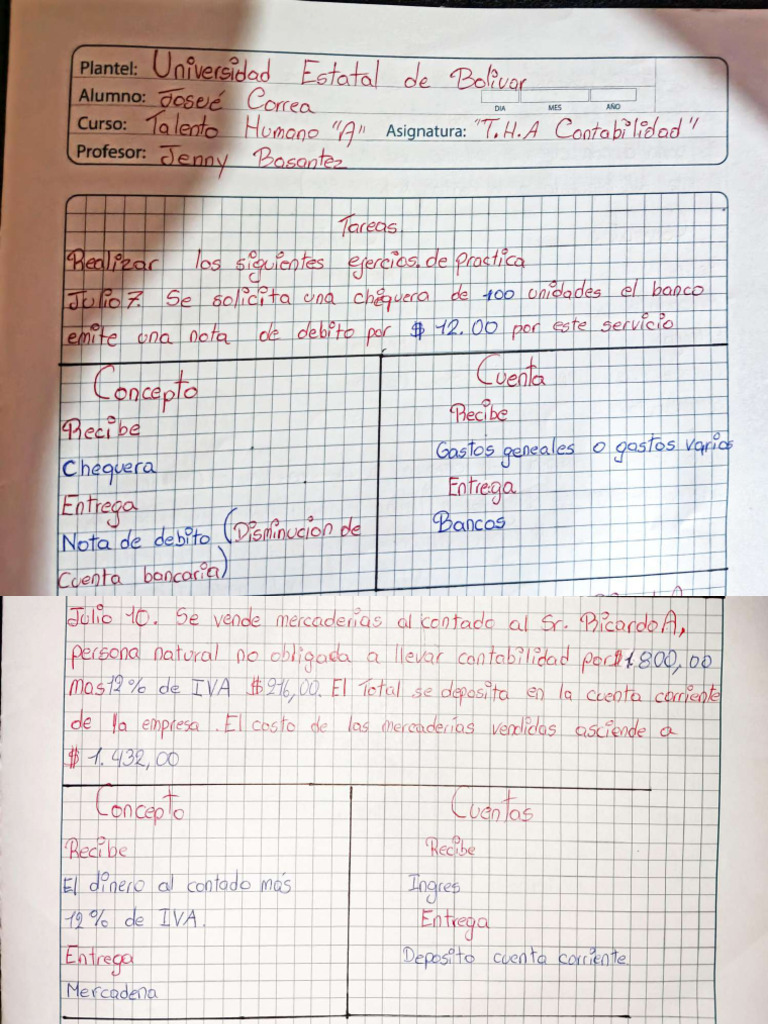 Plantel: Universidad Estatal de Bolivar
Alumno: Josué Correa
DIA MES AÑO
Curso: Talento Humano "A" Asignatura: "T.H.A Contabilidad"
Profesor: Jenny Basantez
Tareas.
Realizar los siguientes ejercios de practica
Julio 7. Se solicita una chequera de 100 unidades el banco
emite una nota de debito por $ 12.00 por este servicio
Concepto
Cuenta
Recibe
Recibe
Chequera
Gastos geneales o gastos varios
Entrega
Entrega
Nota de debito (Disminucion de
Cuenta bancaria)
Bancos
Julio 10. Se vende mercaderias al contado al Sr. Ricardo A,
persona natural no obligada a llevar contabilidad por $1.800,00
mas 12% de IVA $216,00. El Total se deposita en la cuenta corriente
de la empresa. El costo de las mercaderias vendidas asciende a
$ 1.432,00
Concepto
Cuentas
Recibe
Recibe
El dinero al contado más
12% de IVA.
Ingres
Entrega
Entrega
Mercaderia
Deposito cuenta corriente